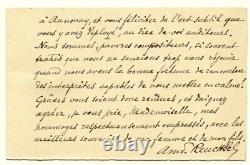 à Annonay, et vous félicitez de l'art subtil que
vous y avez déployé, au dire de vos auditeurs.
Nous sommes, pauvres compositeurs, si souvent
trahis que nous ne saurions trop nous réjouir
quand nous avons la bonne fortune de rencontrer
des interprètes capables de nous mettre en valeur.
Grâces vous soient donc rendues, et daignez
agréer, je vous prie, Mademoiselle, mes
hommages respectueusement empressés, avec les
meilleurs souvenirs de ma femme et de mon fils.
Amé. Reuchsel